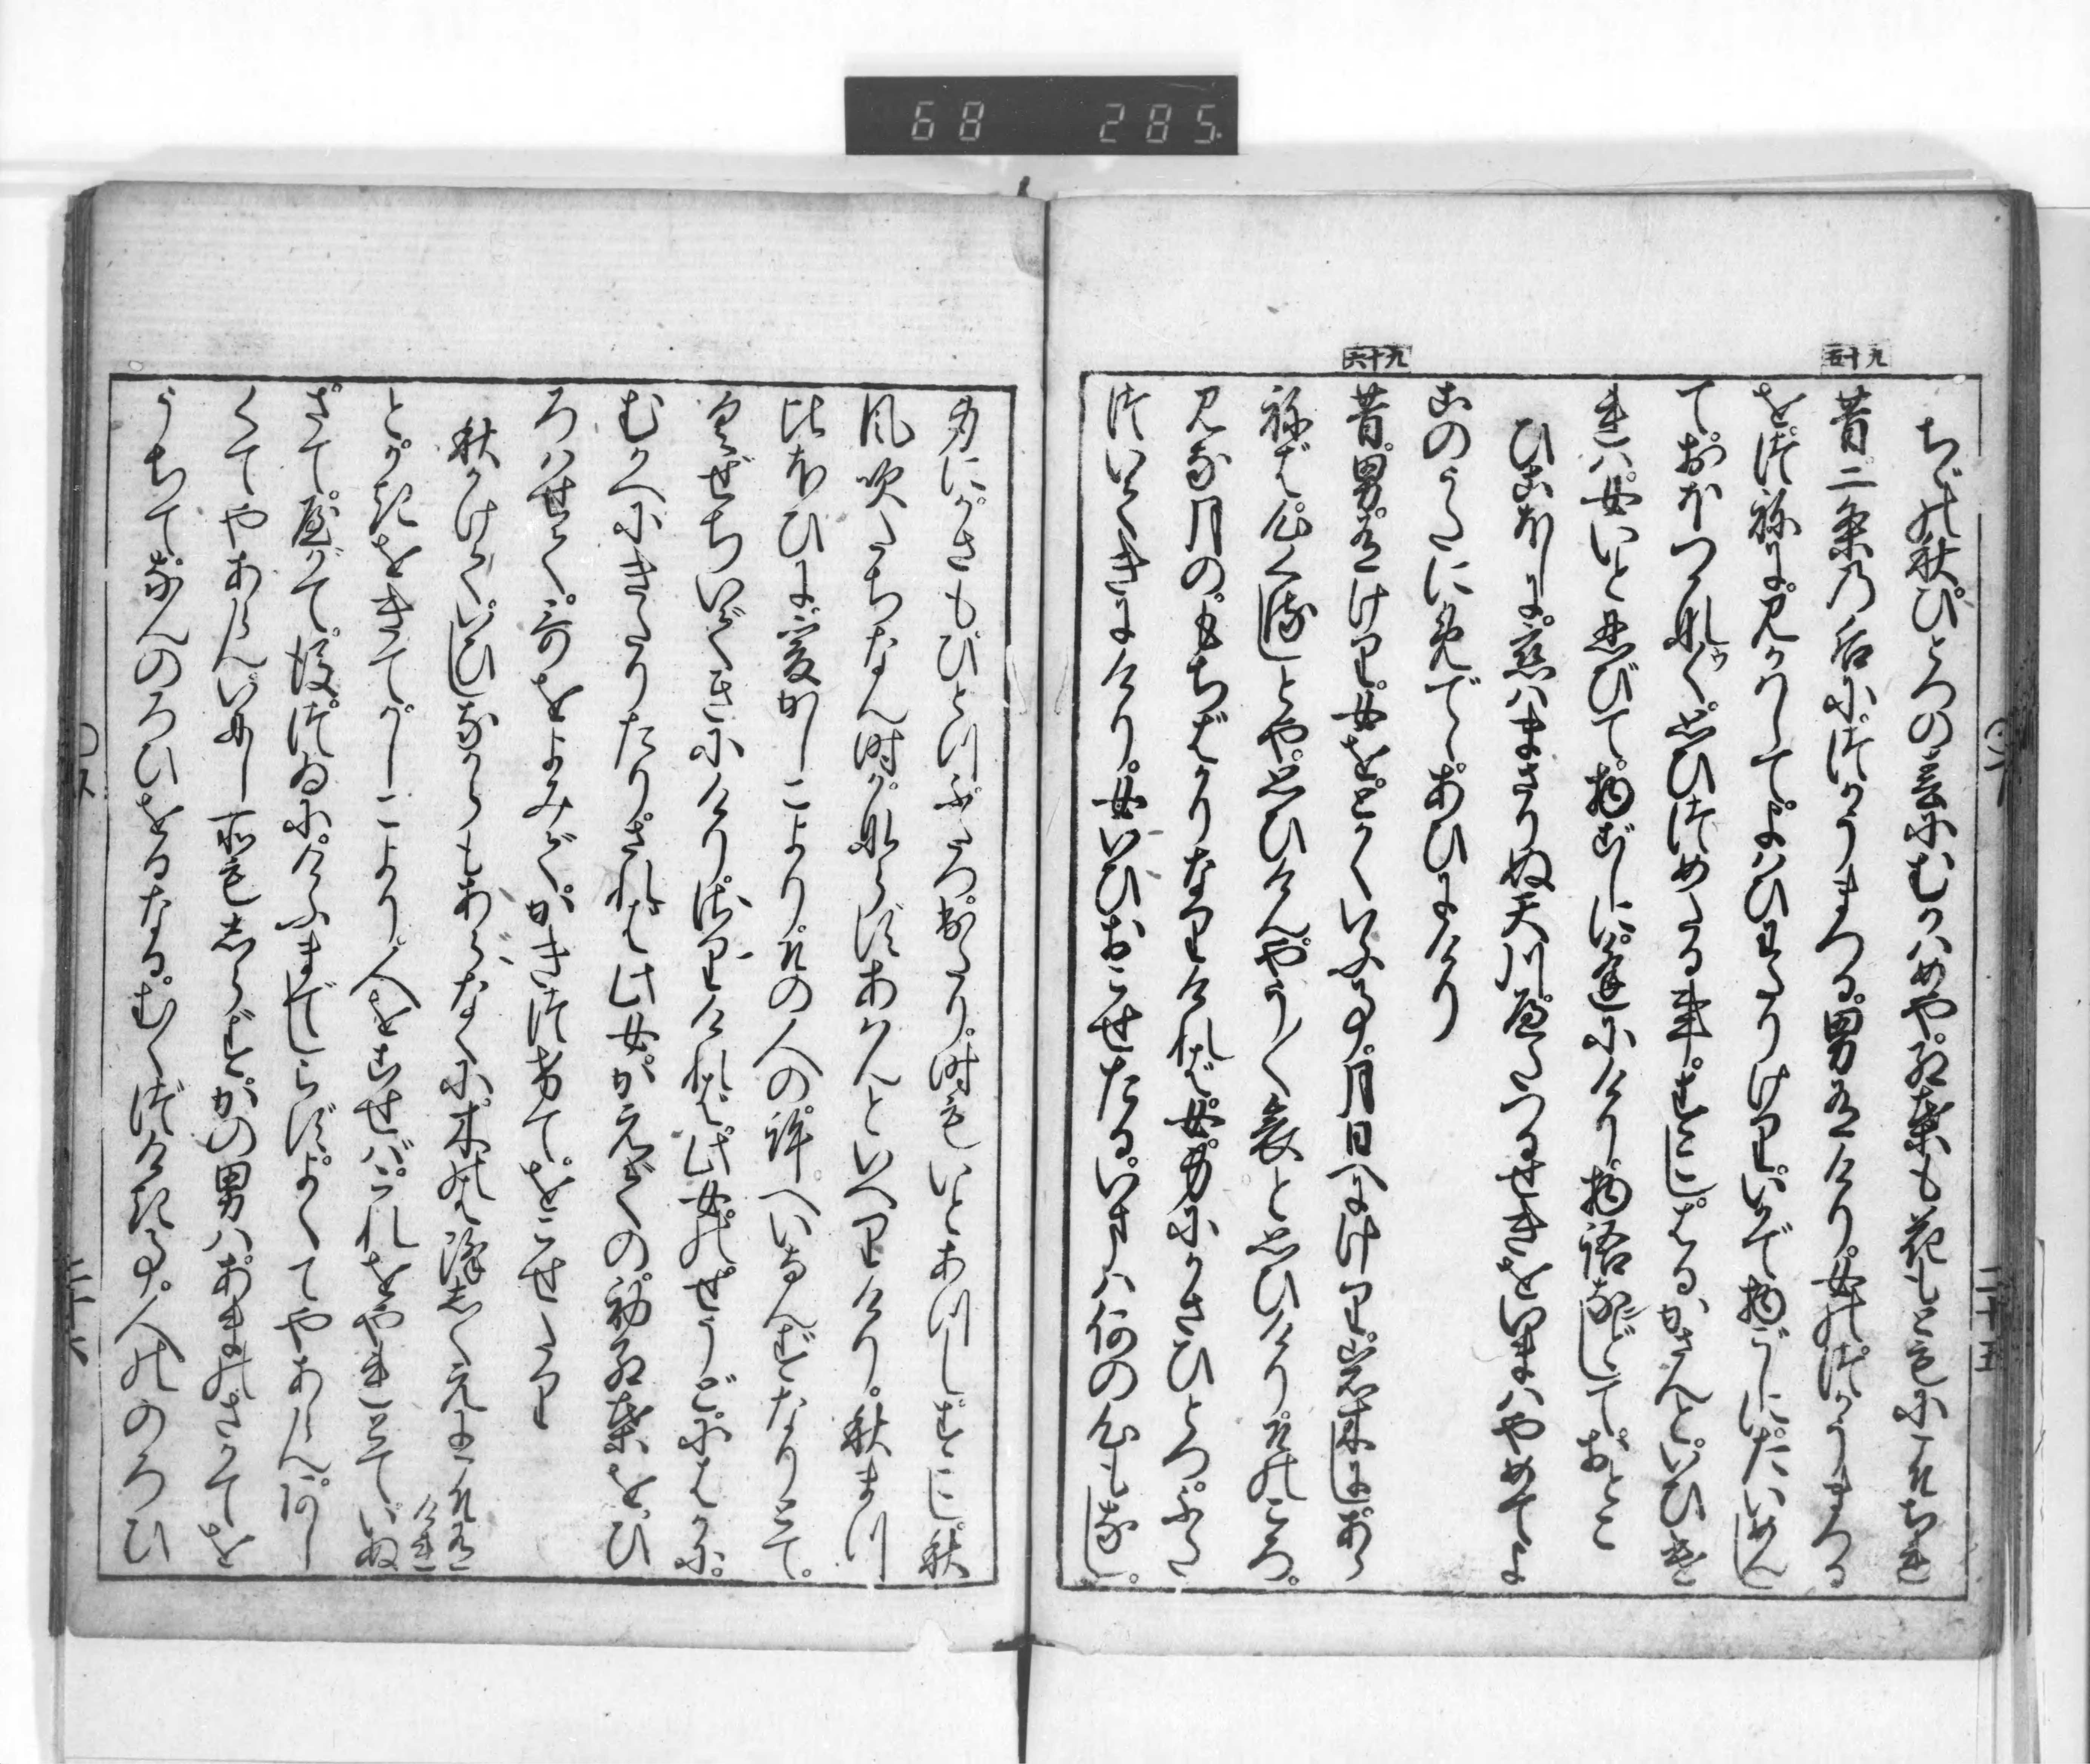 68 285
ちゞの秋ひとつの春にむかはめや紅葉も花もともにこそちれ
九十五
昔二条乃后につかうまつる男有けり女のつかうまつる
を つねに見かはしてよばひわたりけりいかで物ごしにたいめん
ておぼつかなく思ひつめたる事すこしはるかさんといひけ
れば女いと忍びて物ごしに逢にけり物語などしておとこ
ひこぼしに恋はまさりぬ天川へだつるせきをいまはやめてよ
此のうたにめでゝあひにけり
九十六
昔男有けり女をとかくいふ事月日へにけり岩木にしあら
ねば心ぐるしとやおもひけんやう〳〵哀と思ひけりそのころ
みな月のもちばかりなりければ女身にかさひとつふたつ
いできにけり女いひおこせたるいまは何の心もなし
身にかさもひとつふたつおきたり時もいとあつしすこし秋
風吹たちなん時かならずあはんといへりけり秋まつ
比ほひに爰かしこよりその人の許へいなんずなりとて
くぜちいできにけりさりければ此女のせうとにはかに
むかへにきたりたりされば此女かえでの初紅葉をひ
ろはせて哥をよみてかきつけてをこせたり
秋かけていひしながらもあらなくに木の葉降しくえにこそ有けれ
とかきをきてかしこより人をこせばこれをやれとていぬ
さてやがて後つゐにけふまでしらずよくてやあらんあし
くてやあらんいにし所もしらずかの男はあまのさかてを
うちてなんのろひをるなるむくつけき事人ののろひ